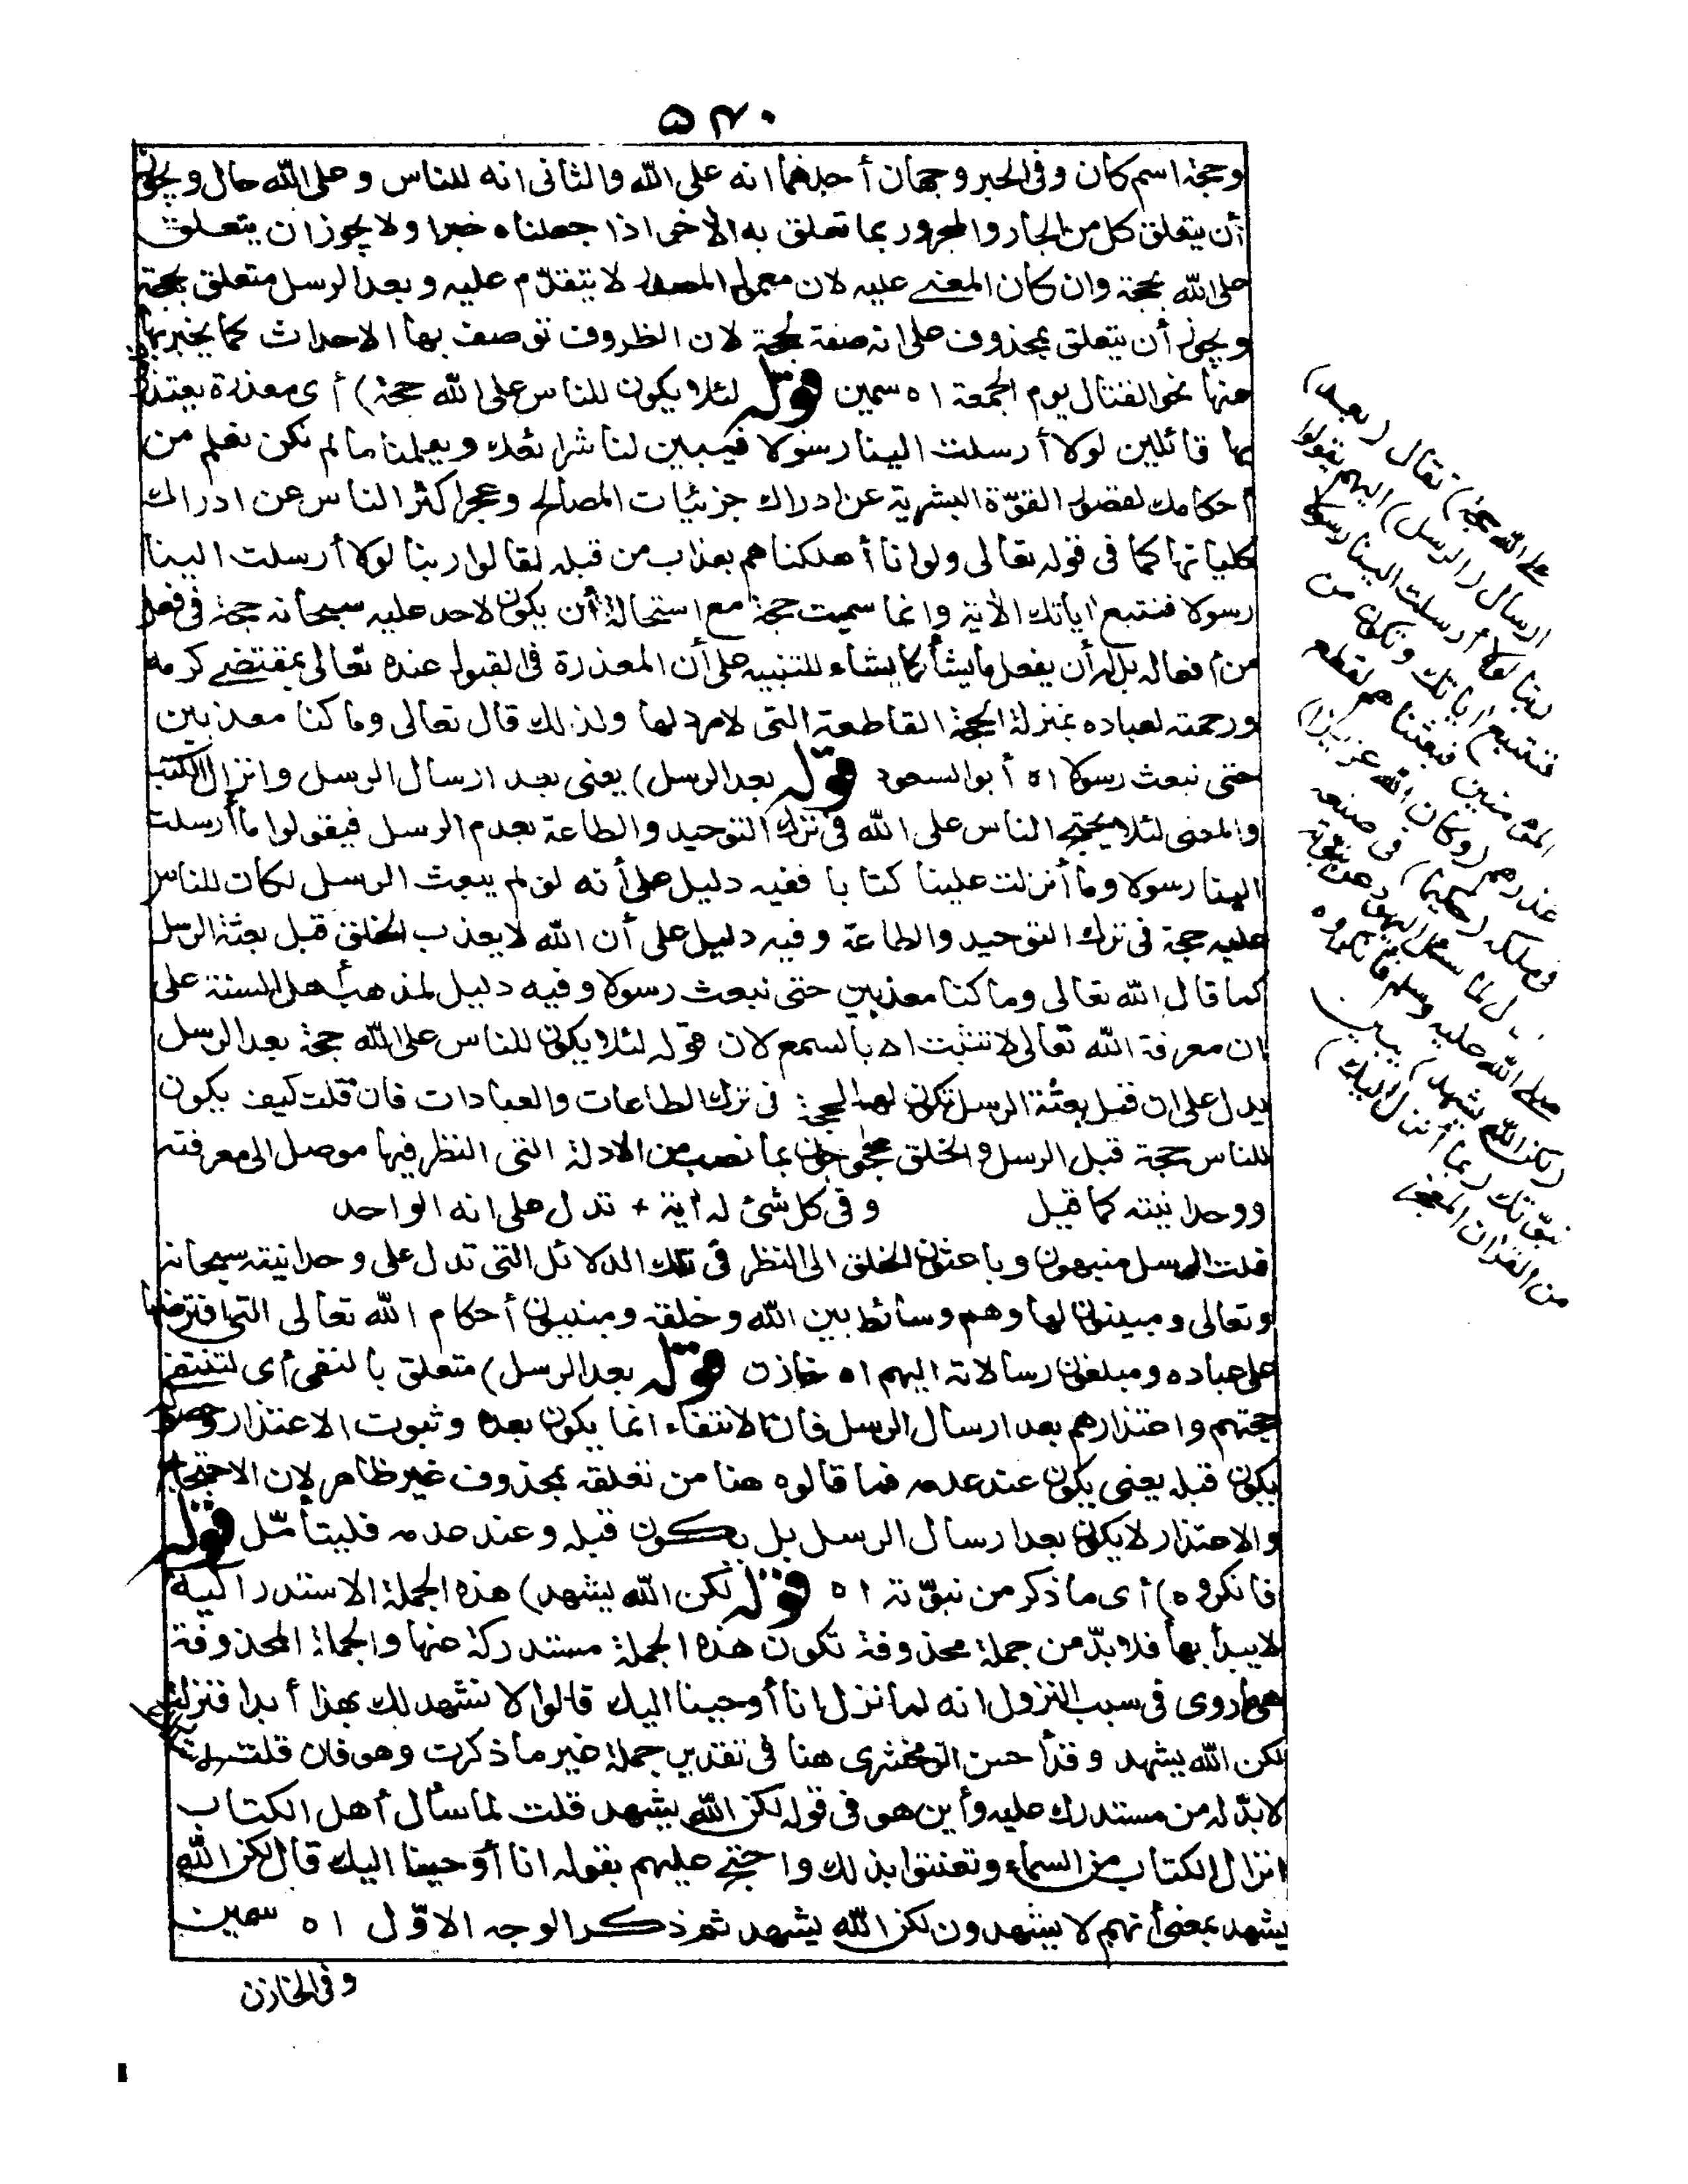 ۵۴۰
وحجة اسم كان وفى الخبر وجهان أحدهما انه على الله والثانى انه للناس وعلى الله حال ويجوز
أن يتعلق كل من الجار والمجرور بما تعلق به الآخر اذا جعلناه خبرا ولا يجوز ان يتعلق
على الله بحجة وان كان المعنى عليه لان معمول المصدر لا يتقدّم عليه وبعد الرسل متعلق بحجة
ويجوز أن يتعلق بمحذوف على انه صفة لحجة لان الظروف توصف بها الاحداث كما يخبر بها
عنها نحو القتال يوم الجمعة اه سمين قوله لئلا يكون للناس على الله حجة) أى معذرة يعتذرون
بها قائلين لولا أرسلت الينا رسولا فيبين لنا شرائعك ويعلمنا ما لم نكن نعلم من
أحكامك لقصور القوّة البشرية عن ادراك جزئيات المصالح وعجز اكثر الناس عن ادراك
كلياتها كما فى قوله تعالى ولو انا أهلكناهم بعذاب من قبله لقالوا ربنا لولا أرسلت الينا
رسولا فنتبع آياتك الآية وانما سميت حجة مع استحالة أن يكون لاحد عليه سبحانه حجة فى فعل
من أفعاله بل له أن يفعل ما يشأ كما يشاء للتنبيه على أن المعذرة فى القبول عنده تعالى بمقتضى كرمه
ورحمته لعباده بمنزلة الحجة القاطعة التى لا مرد لها ولذلك قال تعالى وما كنا معذبين
حتى نبعث رسولا اه أبو السعود قوله بعد الرسل) يعنى بعد ارسال الرسل وانزال الكتب
والمعنى لئلا يحتج الناس على الله فى ترك التوحيد والطاعة بعدم الرسل فيقولوا ما أرسلت
الينا رسولا وما أنزلت علينا كتابا ففيه دليل على أنه لو لم يبعث الرسل لكان للناس
عليه حجة فى ترك التوحيد والطاعة وفيه دليل على أن الله لا يعذب الخلق قبل بعثة الرسل
كما قال الله تعالى وما كنا معذبين حتى نبعث رسولا وفيه دليل لمذهب أهل السنة على
ان معرفة الله تعالى لا تثبت الا بالسمع لان قوله لئلا يكون للناس على الله حجة بعد الرسل
يدل على ان قبل بعثة الرسل تكون لهم الحجة فى ترك الطاعات والعبادات فان قلت كيف يكون
للناس حجة قبل الرسل والخلق محجوجون بما نصب من الادلة التى النظر فيها موصل الى معرفته
ووحدانيته كما قيل وفى كل شئ له آية + تدل على انه الواحد
قلت الرسل منبهون وباعثون الخلق الى النظر فى تلك الدلائل التى تدل على وحدانيته سبحانه
وتعالى ومبينون لها وهم وسائط بين الله وخلقه ومبينون أحكام الله تعالى التى افترضها
على عباده ومبلغون رسالاته اليهم اه خازن قوله بعد الرسل) متعلق بالنفى أى لتنتفى
حجتهم واعتذارهم بعد ارسال الرسل فان الانتفاء انما يكون بعده وثبوت الاعتذار
يكون قبله يعنى يكون عند عدمه فما قالوه هنا من تعلقه بمحذوف غير ظاهر لان الاحتجاج
والاعتذار لا يكون بعد ارسال الرسل بل يكون قبله وعند عدمه فليتأمّل قوله
فانكروه) أى ما ذكر من نبوّته اه قوله لكن الله يشهد) هذه الجملة الاستدراكية
لا يبدأ بها فلا بدّ من جملة محذوفة تكون هذه الجملة مستدركة عنها والجملة المحذوفة
هى ما روى فى سبب النزول انه لما نزل انا أوحينا اليك قالوا لا نشهد لك بهذا أبدا فنزلت
لكن الله يشهد وقد أحسن الزمخشرى هنا فى تقدير جملة غير ما ذكرت وهو فان قلت
لا بدّ له من مستدرك عليه وأين هو فى قوله لكن الله يشهد قلت لما سأل أهل الكتاب
انزال الكتاب من السماء وتعنتوا بذلك واحتج عليهم بقوله انا أوحينا اليك قال لكن الله
يشهد بمعنى أنهم لا يشهدون لكن الله يشهد ثم ذكر الوجه الاوّل اه سمين
وفى الخازن
على الله حجة) تقال (بعد)
ارسال (الرسل) اليهم يقولوا
ربنا لولا أرسلت الينا رسولا
فنتبع آياتك ونكون من
المؤمنين فبعثناهم لقطع
عذرهم (وكان الله عزيزا)
فى ملكه (حكيما) فى صنعه
لما سئل اليهود عن نبوّته
صلى الله عليه وسلم فأنكروه
(لكن الله يشهد) يبين
نبوّتك (بما أنزل اليك)
من القرآن المعجز